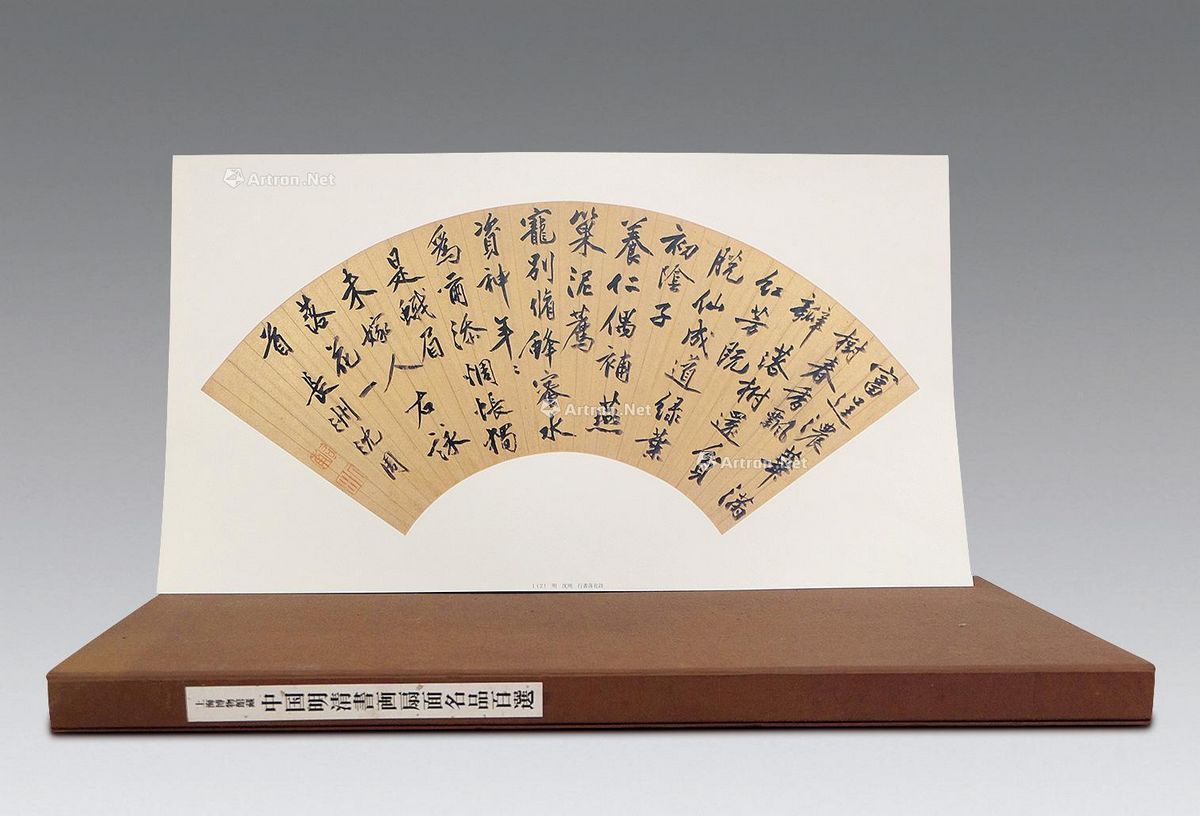 富逞濃華滿
樹春香飄
瓣落樹還貧
紅芳既
脫仙成道綠葉
初陰子
養仁偶補燕
巢泥薦
寵別脩蜂蜜水
資神年〻
爲爾添惆悵獨
是蛾眉
未嫁人右詠
落花一
首長洲沈周
1(2) 明 沈周 行書落花詩
上海博物館藏 中国明清書画扇面名品百選
Artron.Net
Artron.Net
Artron.Net